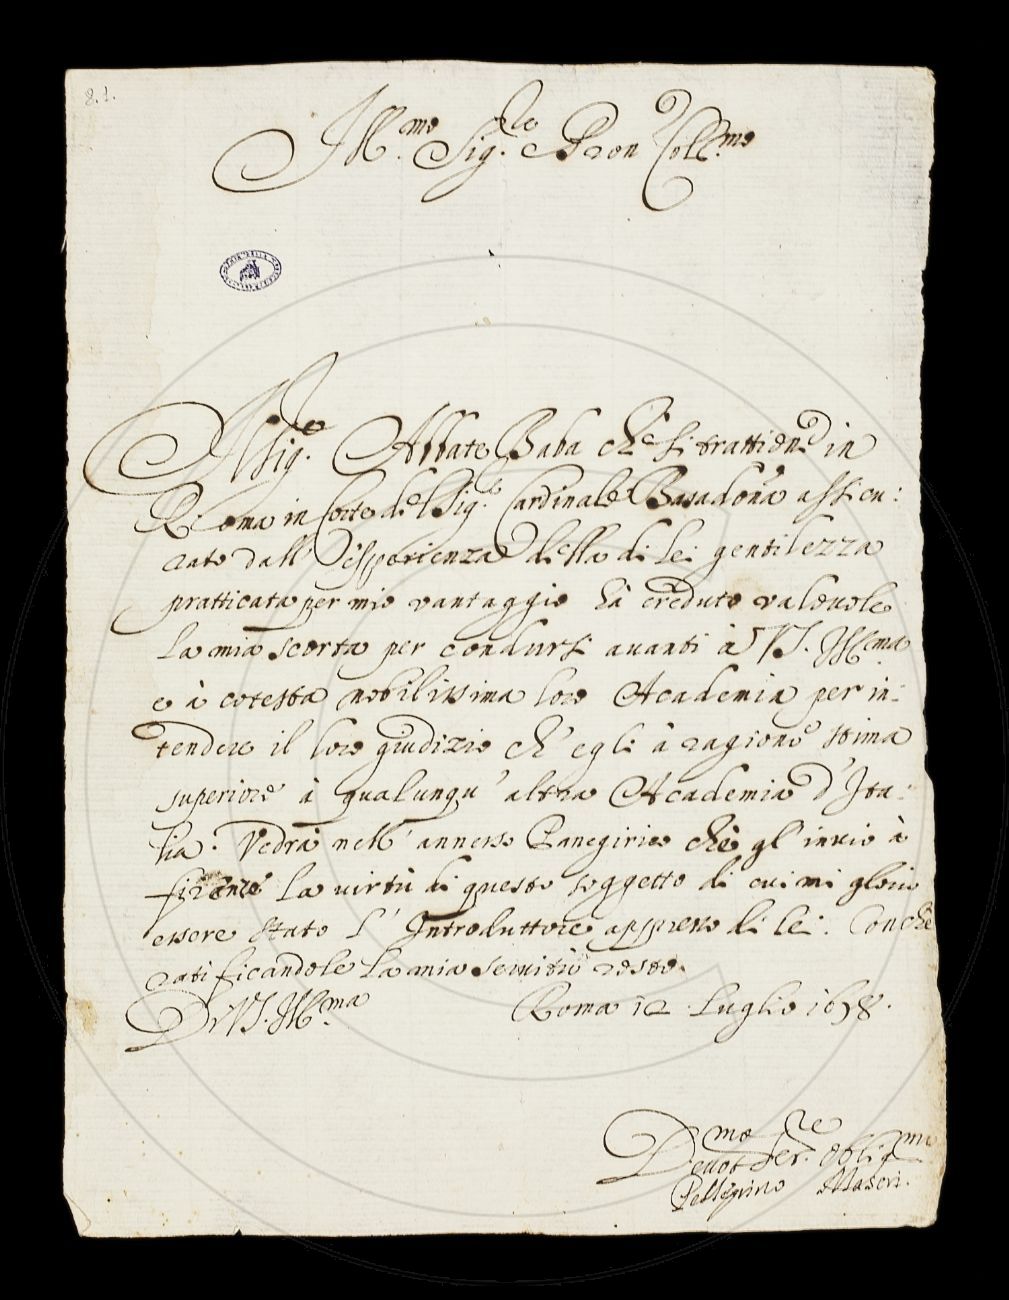 8.1.
Ill.mo Sig.re Pron Coll.mo
Il Sig.re Abbate Baba che si trattiene in
Roma in Corte del Sig.r Cardinale Basadona assicu:
rato dall' esperienza della di lei gentilezza
pratticata per mio vantaggio hà creduto valevole
la mia scorta per condursi avanti à V.S. Ill.ma
e à cotesta nobilissima loro Academia per in:
tendere il loro giudizio ch' egli à ragione stima
superiore à qualunqu' altra Academia d' Ita:
lia. Vedrà nell' annesso Panegirico che gl' invio à
firenze la virtù di questo soggetto di cui mi glorio
essere stato l' Introduttore appresso di lei. Con che
ratificandole la mia servitù resto.
Di V.S. Ill.ma Roma 12 Luglio 1678.
Devot.mo Ser.re Oblig.mo
Pellegrino Maseri.